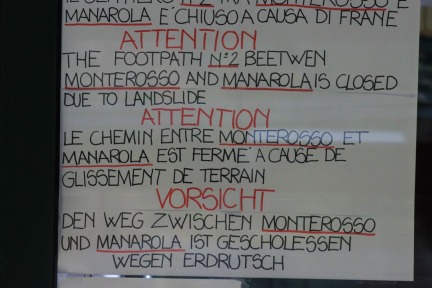 IL SENTIERO N°2 TRA MONTEROSSO E
MANAROLA E' CHIUSO A CAUSA DI FRANE
ATTENTION
THE FOOTPATH N°2 BEETWEN
MONTEROSSO AND MANAROLA IS CLOSED
DUE TO LANDSLIDE
ATTENTION
LE CHEMIN ENTRE MONTEROSSO ET
MANAROLA EST FERMÉ A CAUSE DE
GLISSEMENT DE TERRAIN
VORSICHT
DEN WEG ZWISCHEN MONTEROSSO
UND MANAROLA IST GESCHOLESSEN
WEGEN ERDRUTSCH